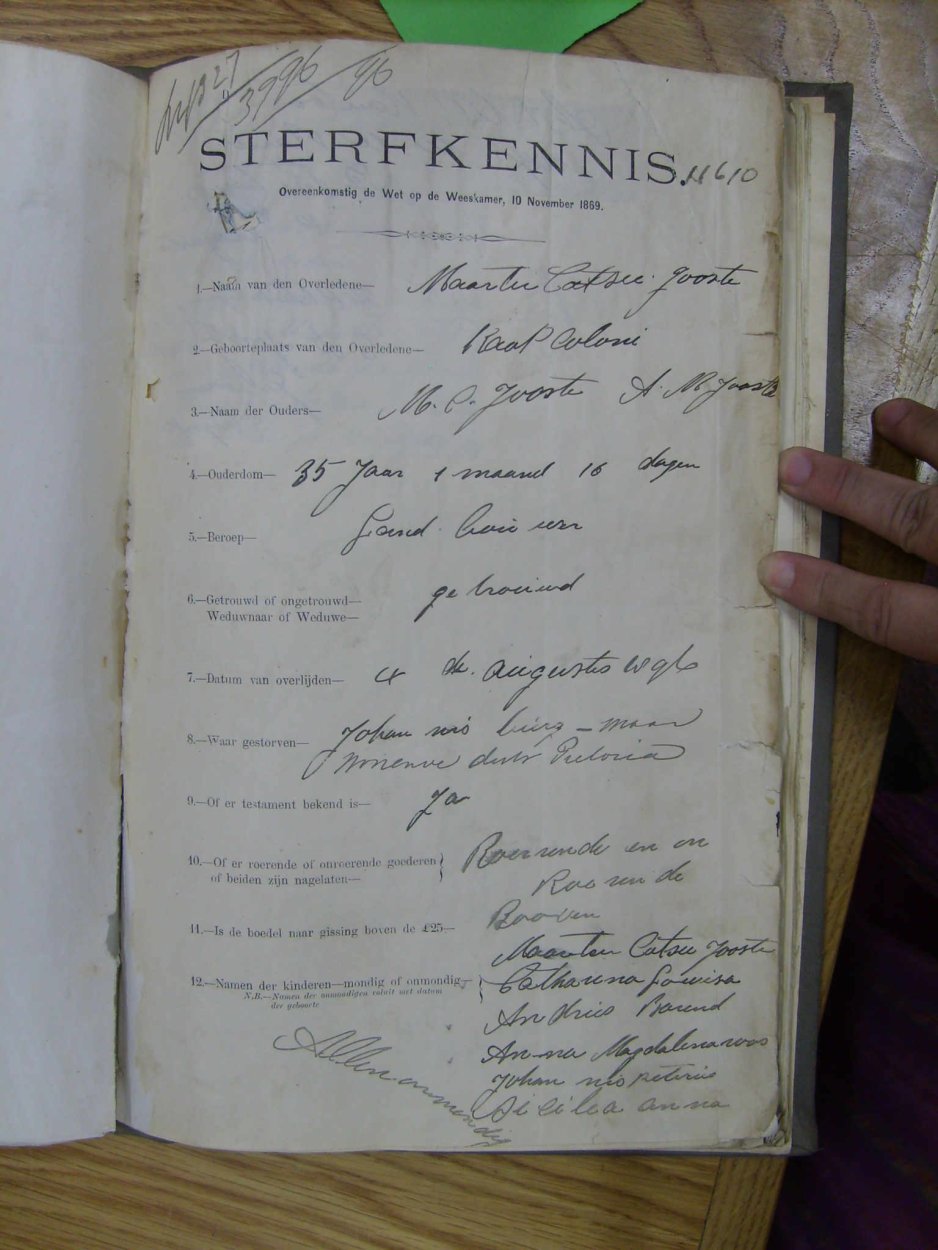 3796/96
STERFKENNIS. 11610
Overeenkomstig de Wet op de Weeskamer, 10 November 1869.
1.—Naam van den Overledene— Maarten Catsie Jooste
2.—Geboorteplaats van den Overledene— Kaap Coloni
3.—Naam der Ouders— M. C. Jooste A. M. Jooste
4.—Ouderdom— 35 Jaar 1 maand 16 dagen
5.—Beroep— Land bouwer
6.—Getrouwd of ongetrouwd—
Weduwnaar of Weduwe— getrouwd
7.—Datum van overlijden— 4 de Augustus 1896
8.—Waar gestorven— Johan nis burg — maar
distr Pretoria
9.—Of er testament bekend is— Ja
10.—Of er roerende of onroerende goederen
of beiden zijn nagelaten— Roerende en on
Roerende
11.—Is de boedel naar gissing boven de £25— Booven
Maarten Catsie Jooste
12.—Namen der kinderen—mondig of onmondig— Catharina Lowisa
N.B.—Namen der onmondigen voluit met datum
der geboorte
Andries Barend
An-na Magdalena
Johan nis Peterus
Sicilea anna
Allen onmondig